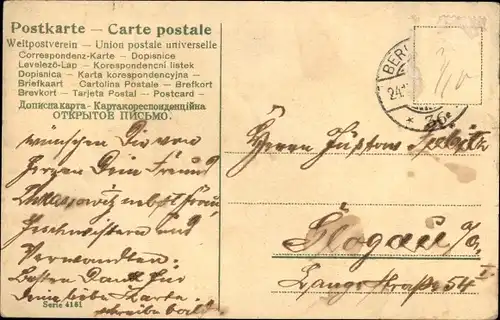 Postkarte — Carte postale
Weltpostverein — Union postale universelle
Correspondenz-Karte — Dopisnice
Levelező-Lap — Korespondencni listek
Dopisnica — Karta korespondencyjna —
Briefkaart — Cartolina Postale — Brefkort
Brevkort — Tarjeta Postal — Postcard —
Дописна карта - Картакореспонденційна
ОТКРЫТОЕ ПИСЬМО.
BERL
24.
* 36.
wünschen Dir von
Herzen Dein Freund
nebst Frau,
Geschwistern und
Verwandten.
Besten Dank für
Deine liebe Karte.
schreibe bald
Herrn Gustav
Glogau
Lange Straße 54 I
Serie 4161